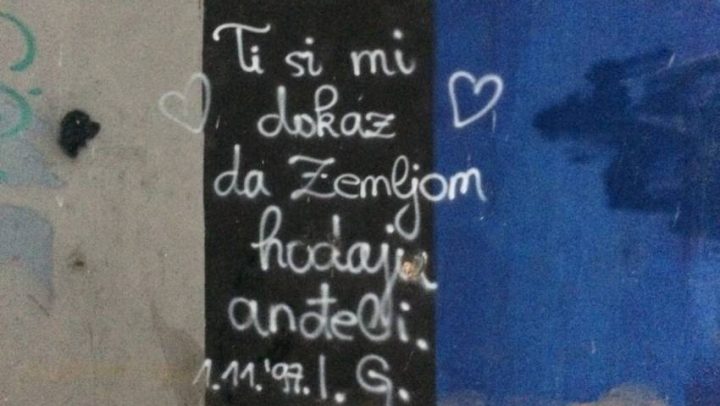 Ti si mi
dokaz
da Zemljom
hodaju
anđeli.
1.11.'97. I. G.